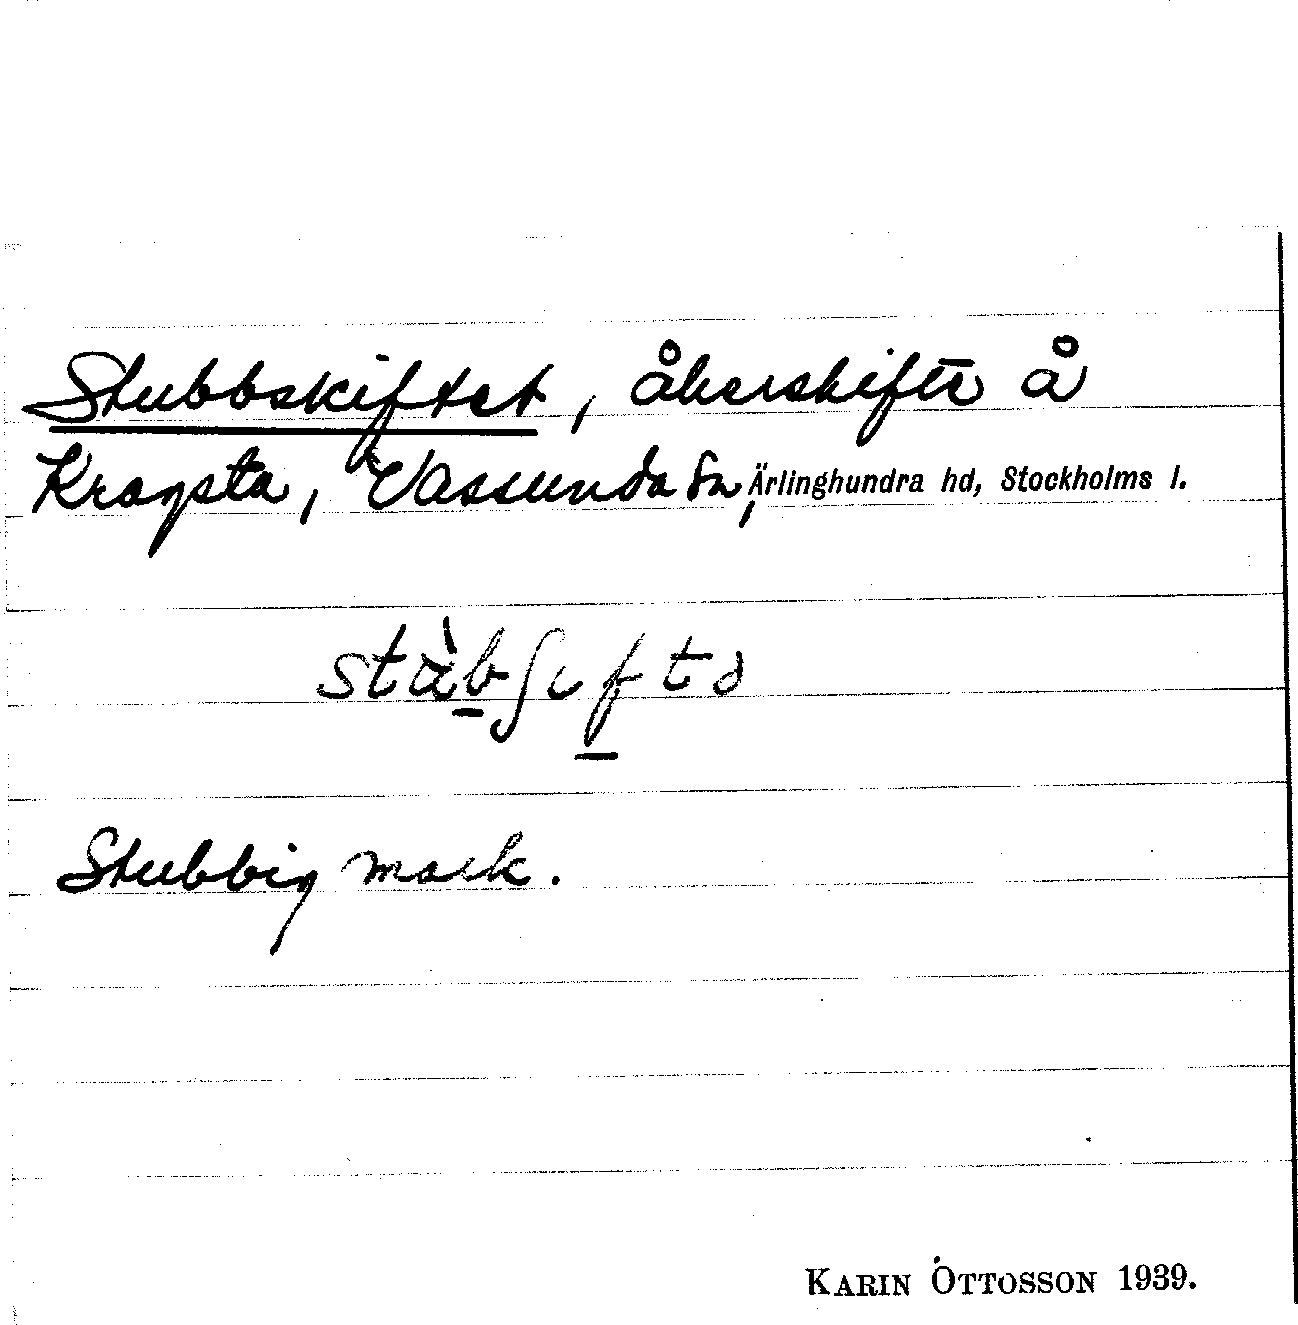 Stubbskiftet, åkerskifte å
Kragsta, Vassunda sn, Ärlinghundra hd, Stockholms l.
stàbʃiftə
Stubbig mark.
KARIN OTTOSSON 1939.